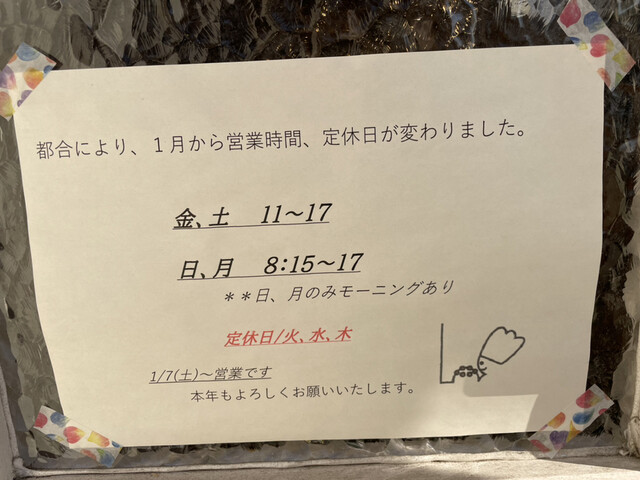 都合により、１月から営業時間、定休日が変わりました。
金、土　11～17
日、月　8:15～17
＊＊日、月のみモーニングあり
定休日/火、水、木
1/7(土)～営業です
本年もよろしくお願いいたします。